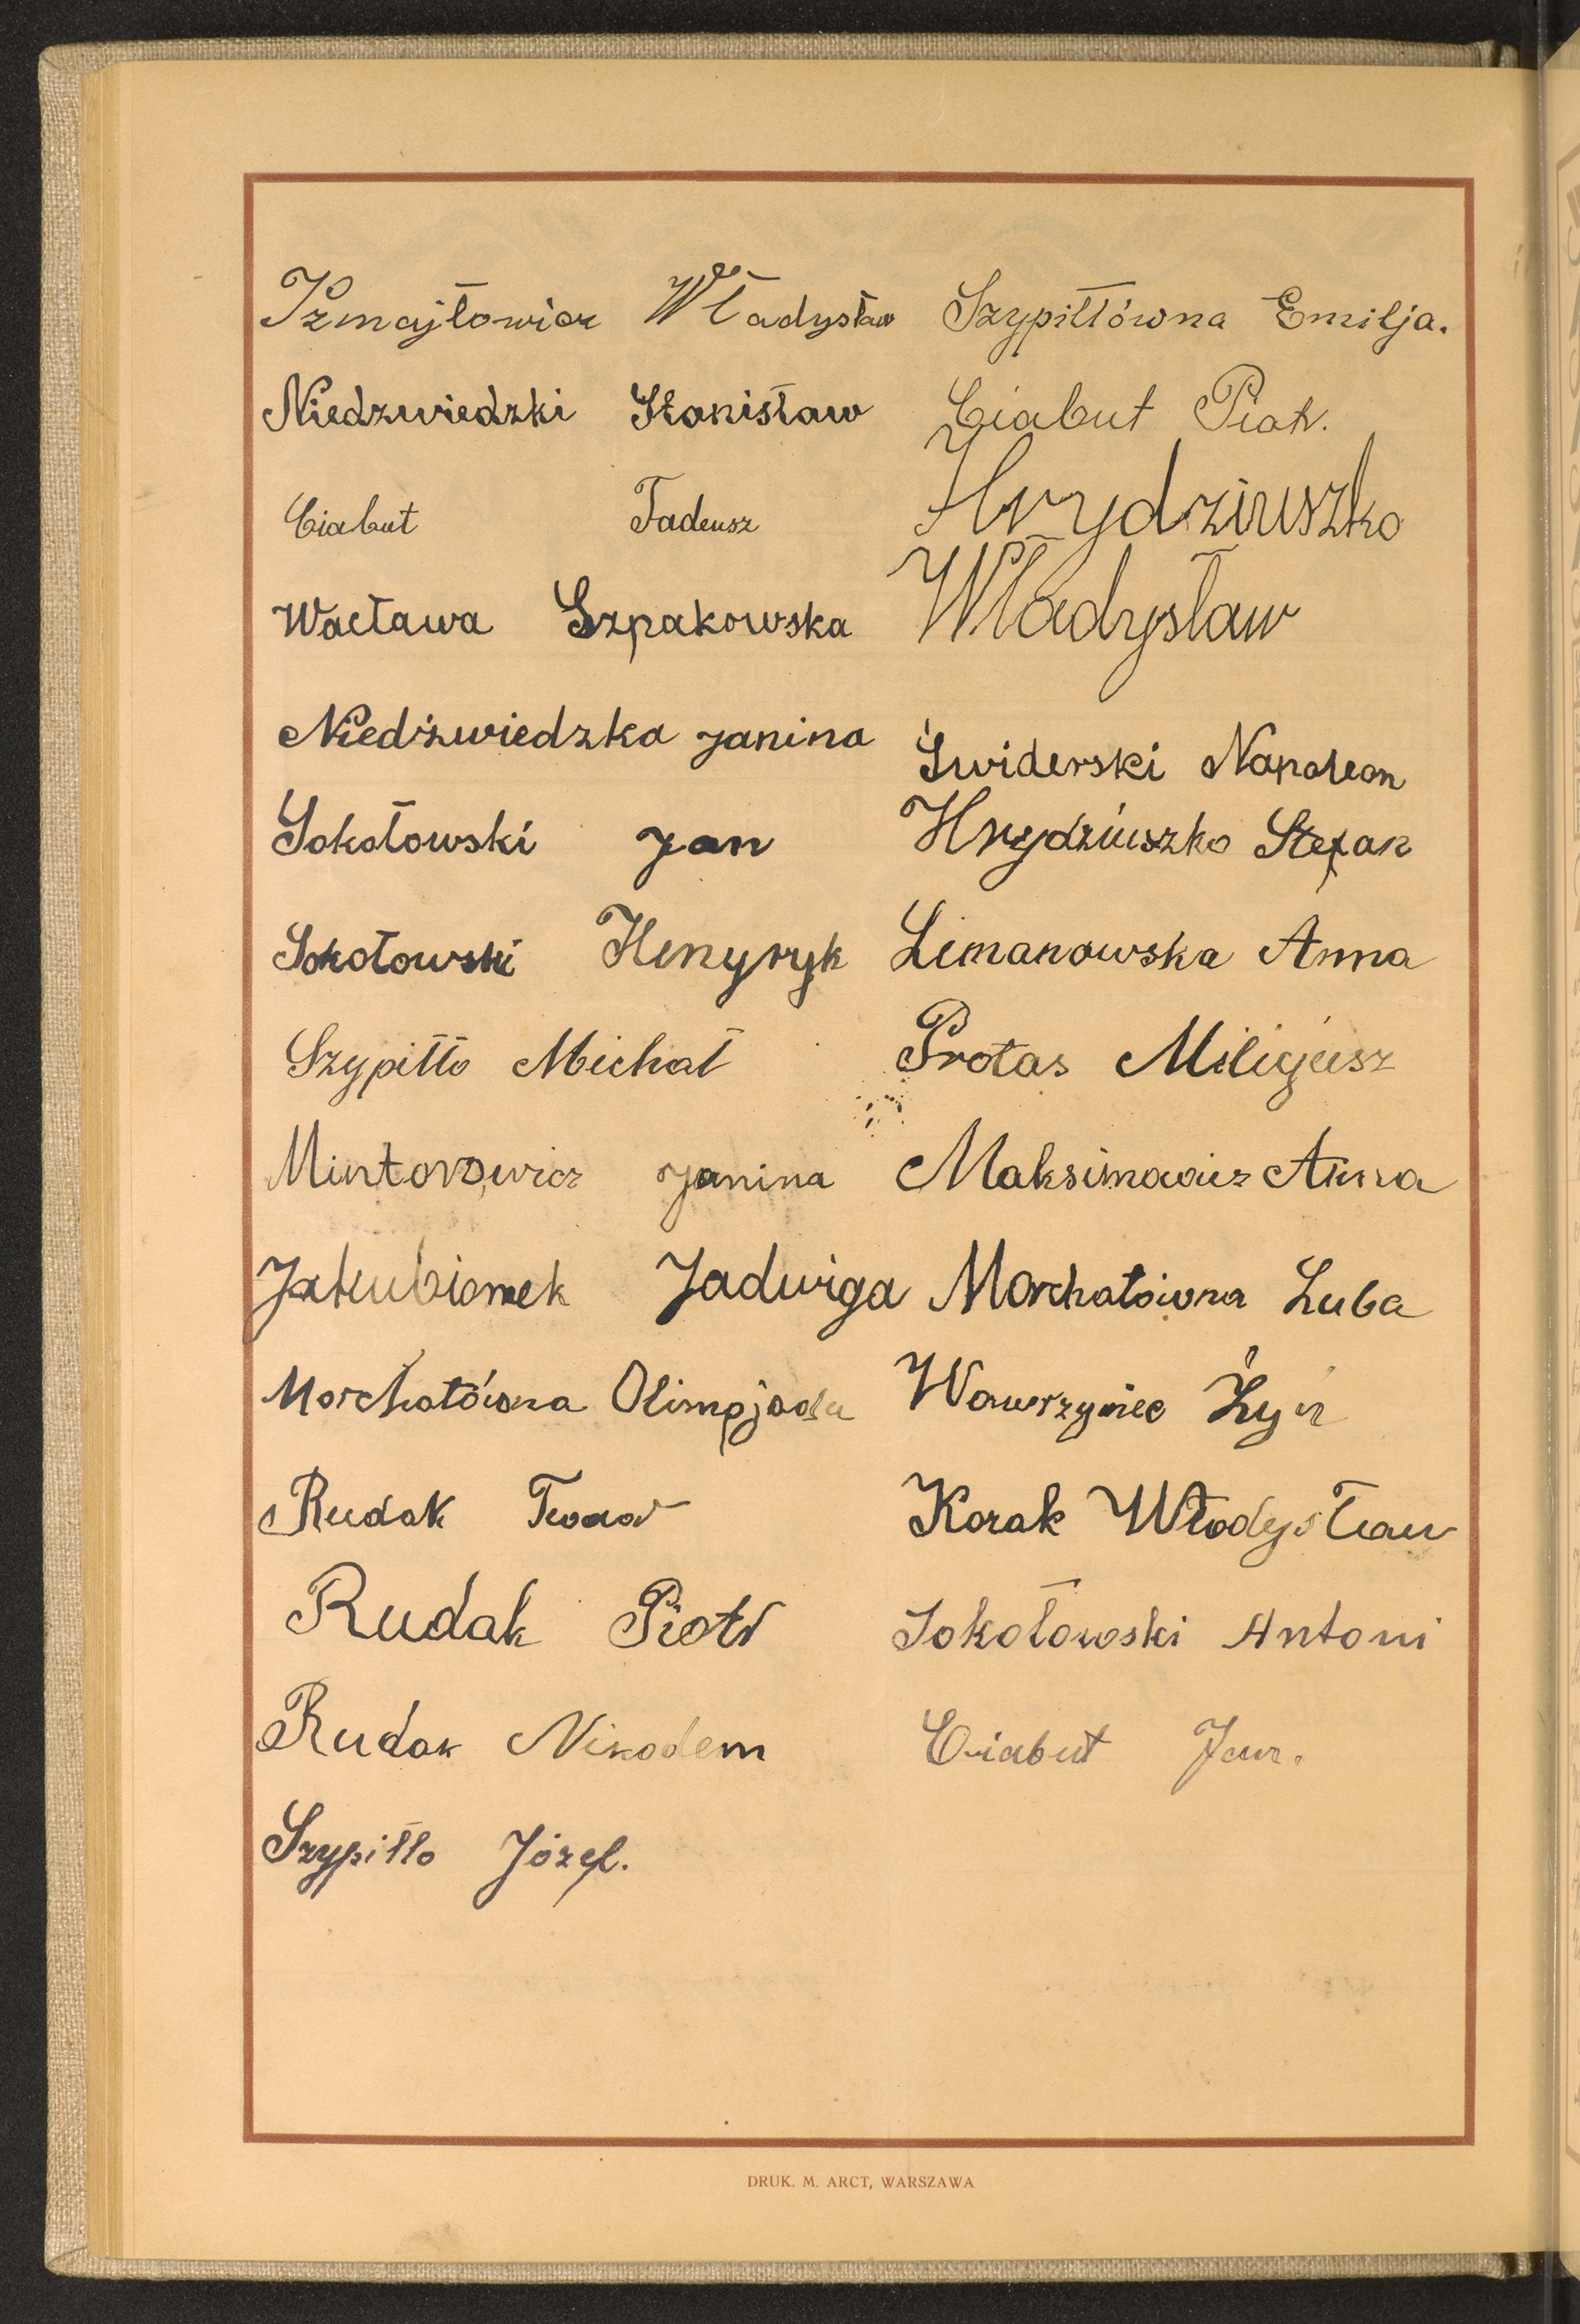 Izmajłowicz Władysław
Niedzwiedzki Stanisław
Ciabut Tadeusz
Wacława Szpakowska
Niedźwiedzka Janina
Sokołowski Jan
Sokołowski Henyryk
Szypiłło Michał
Mintorowicz Janina
Jakubionek Jadwiga
Morchatówna Olimpjada
Rudak Teodor
Rudak Piotr
Rudak Nikodem
Szypiłło Józef.
Szypiłłówna Emilja.
Ciabut Piotr.
Hrydziuszko
Władysław
Świderski Napoleon
Hrydziuszko Stefan
Limanowska Anna
Protas
Maksimowicz Anna
Morchatówna Luba
Wawrzyniec Żyń
Kozak Włodysław
Sokołowski Antoni
Ciabut Jan.
DRUK. M. ARCT, WARSZAWA